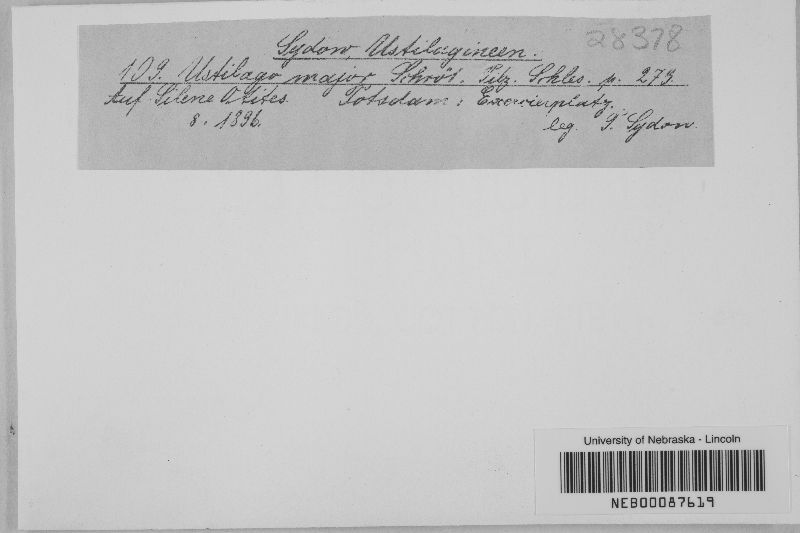 Sydow, Ustilagineen.
28378
109. Ustilago major Schröt. Pilz. Schles. p. 273
Auf Silene Otites. Potsdam: Exercierplatz.
8. 1896. leg. P. Sydow.
University of Nebraska - Lincoln
NEB00087619